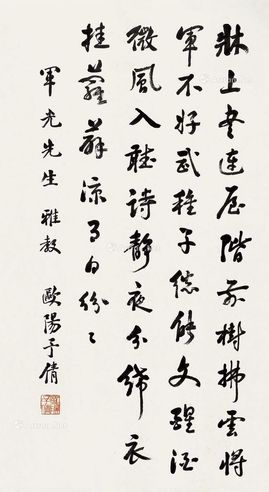 牀上书连屋階前樹拂雲將
軍不好武稚子總能文醒酒
微風入聽詩靜夜分絺衣
挂蘿薜涼月白紛〻
軍光先生 雅教 歐陽予倩